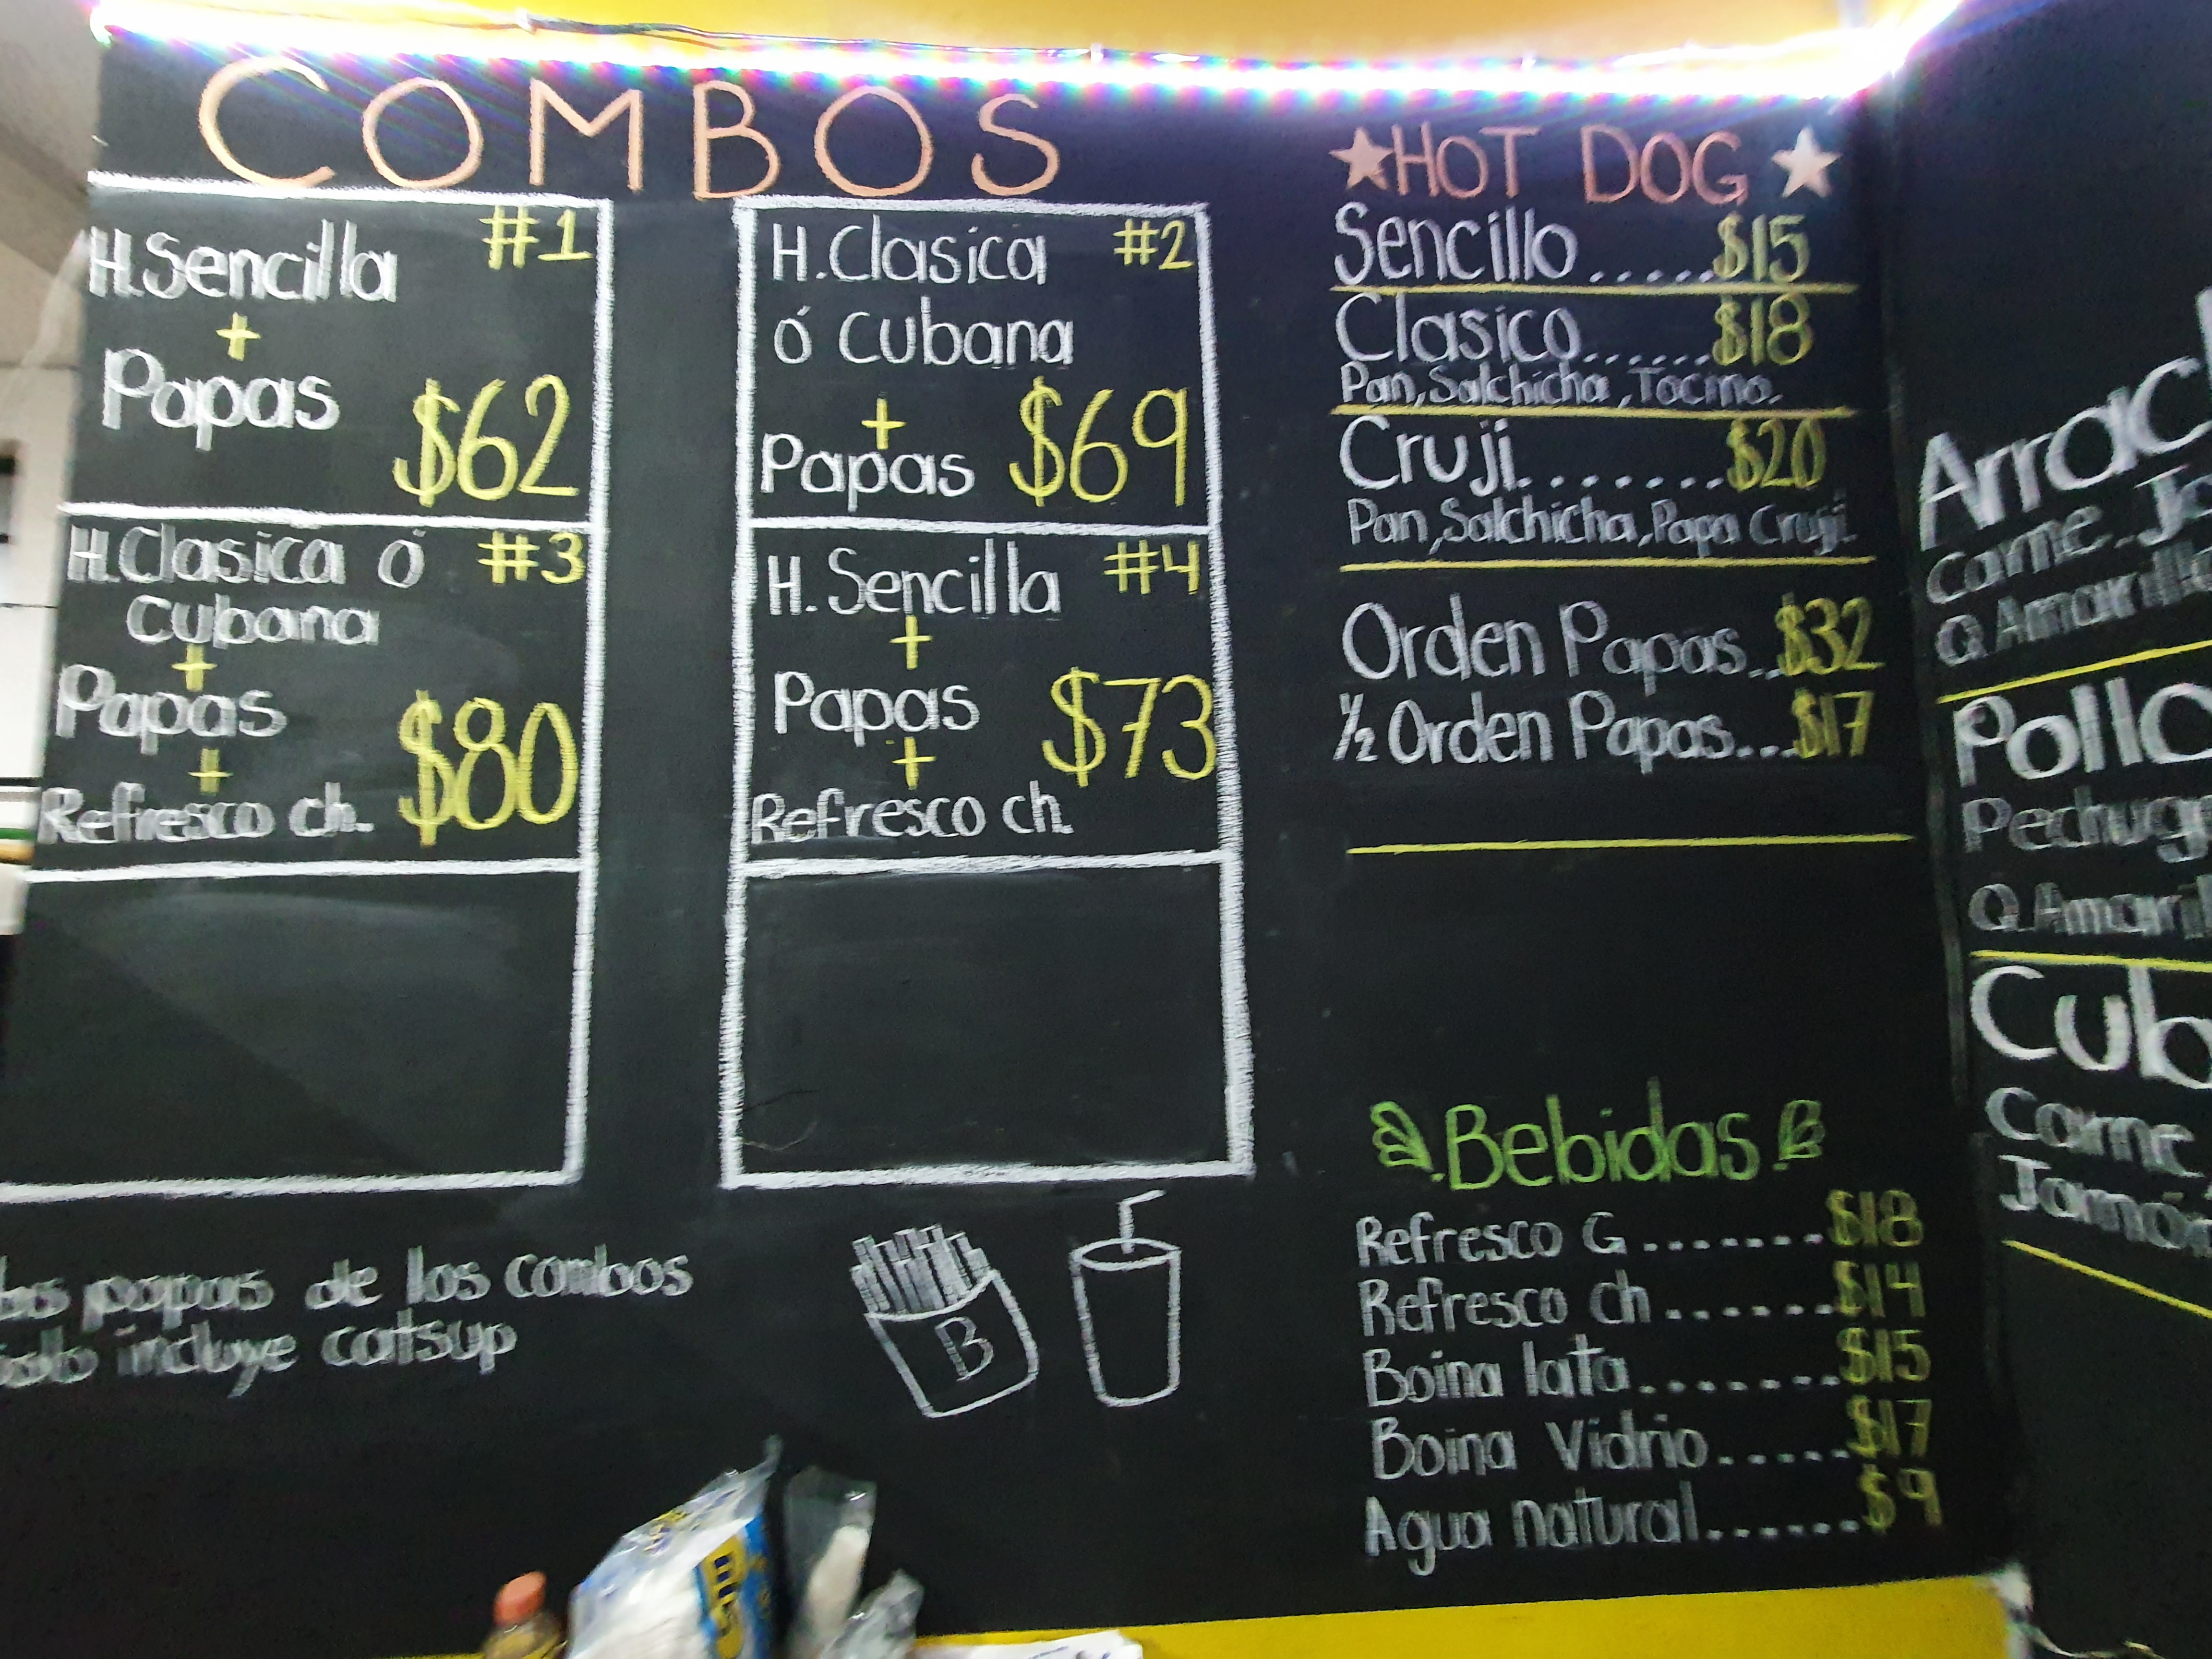 COMBOS
H.Sencilla #1
+
Papas $62
H.Clasica #2
ó Cubana
+
Papas $69
H.Clasica ó #3
Cubana
+
Papas
+
Refresco ch. $80
H.Sencilla #4
+
Papas $73
+
Refresco ch.
papas de los combos
incluye catsup
B
HOT DOG
Sencillo.....$15
Clasico......$18
Pan,Salchicha,Tocino.
Cruji.......$20
Pan,Salchicha,Papa Cruji.
Orden Papas...$32
1/2 Orden Papas...$17
Bebidas
Refresco G.......$18
Refresco ch......$14
Boina lata.......$15
Boina Vidrio.....$17
Agua natural......$9
Carne
Q.
Pollo
Carne